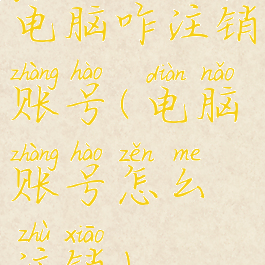 电脑咋注销
zhàng hào diàn nǎo
账号(电脑
zhàng hào zěn me
账号怎么
zhù xiāo
注销)